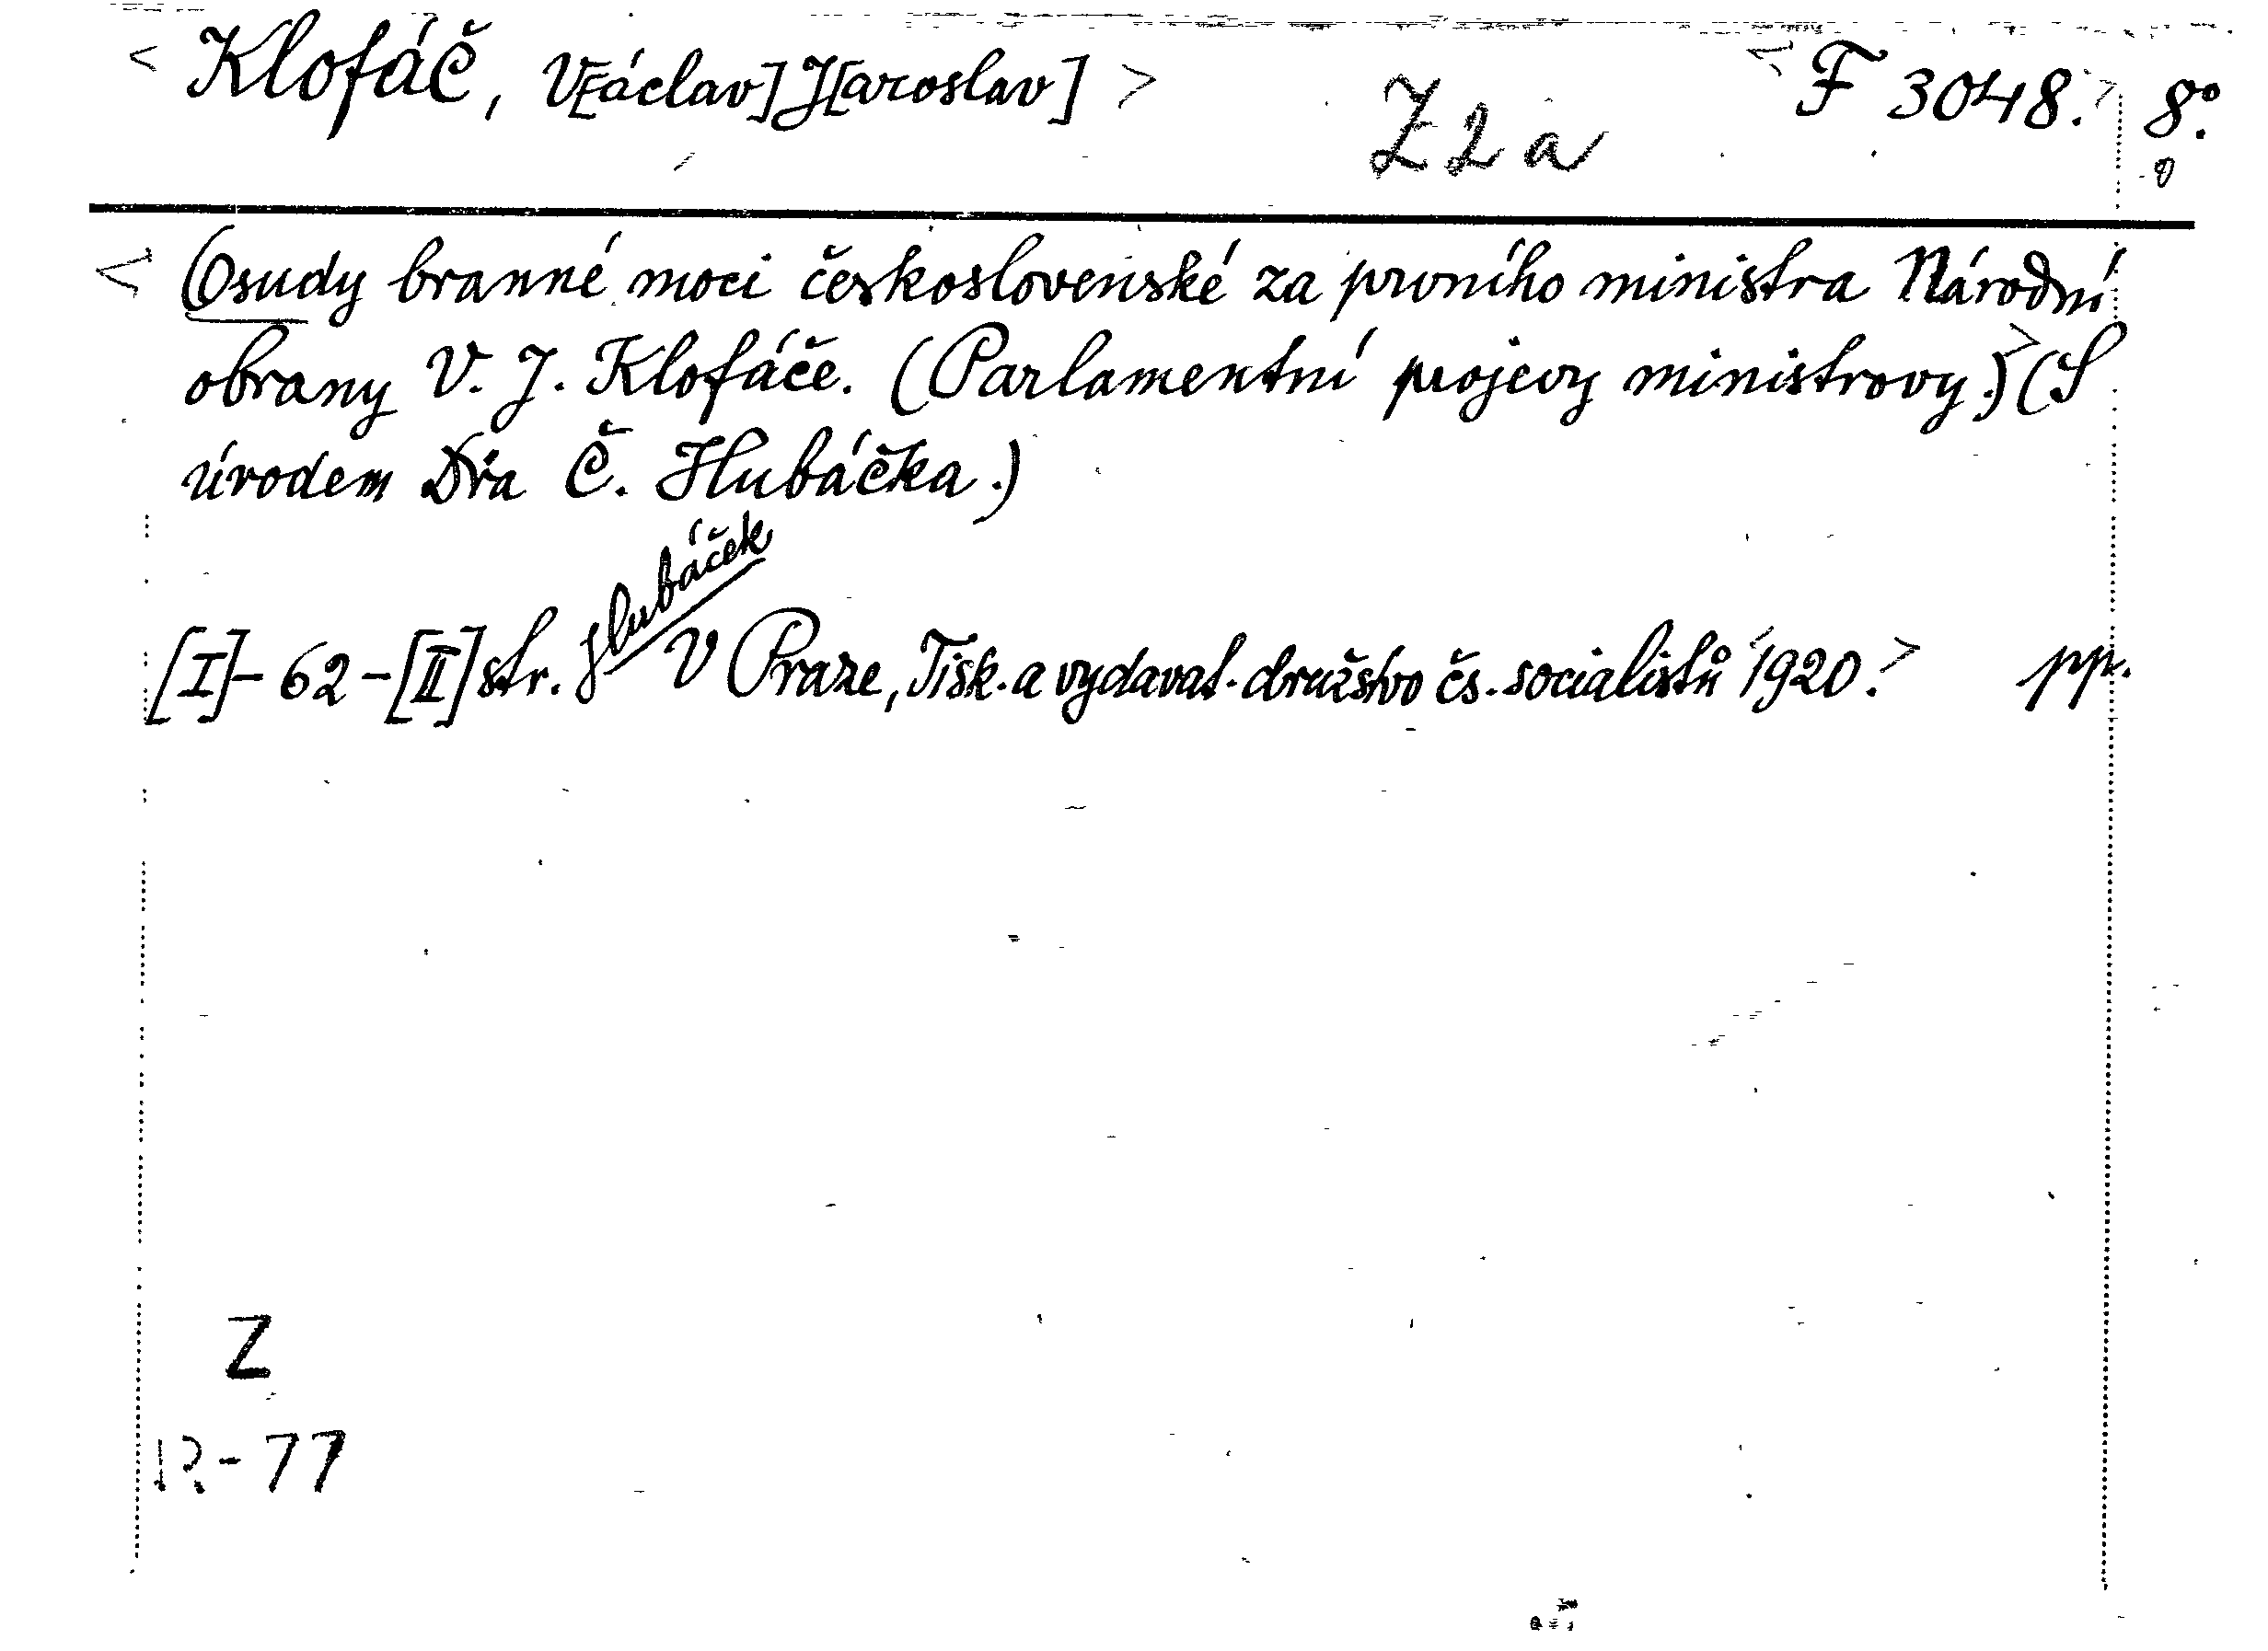 < Klofáč, V[áclav] J[aroslav] > Z2a < F 3048. > 8°.
< Osudy branné moci československé za prvního ministra Národní
obrany V. J. Klofáče. (Parlamentní projevy ministrovy.) > (S
úvodem Dra Č. Hlubáčka.)
Hlubáček
[I]-62-[II] str. V Praze, Tisk. a vydavat. družstvo čs. socialistů 1920. > pp.
Z
R-77